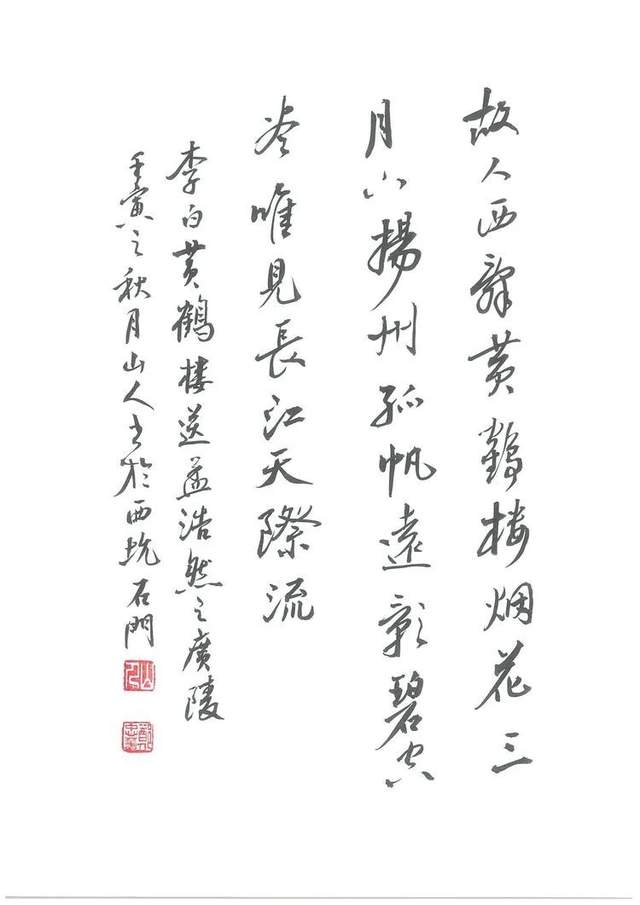 故人西辞黄鶴楼烟花三
月下揚州孤帆遠影碧空
尽唯見長江天際流
李白黄鶴楼送孟浩然之廣陵
壬寅之秋月山人书於西坑石門
山人